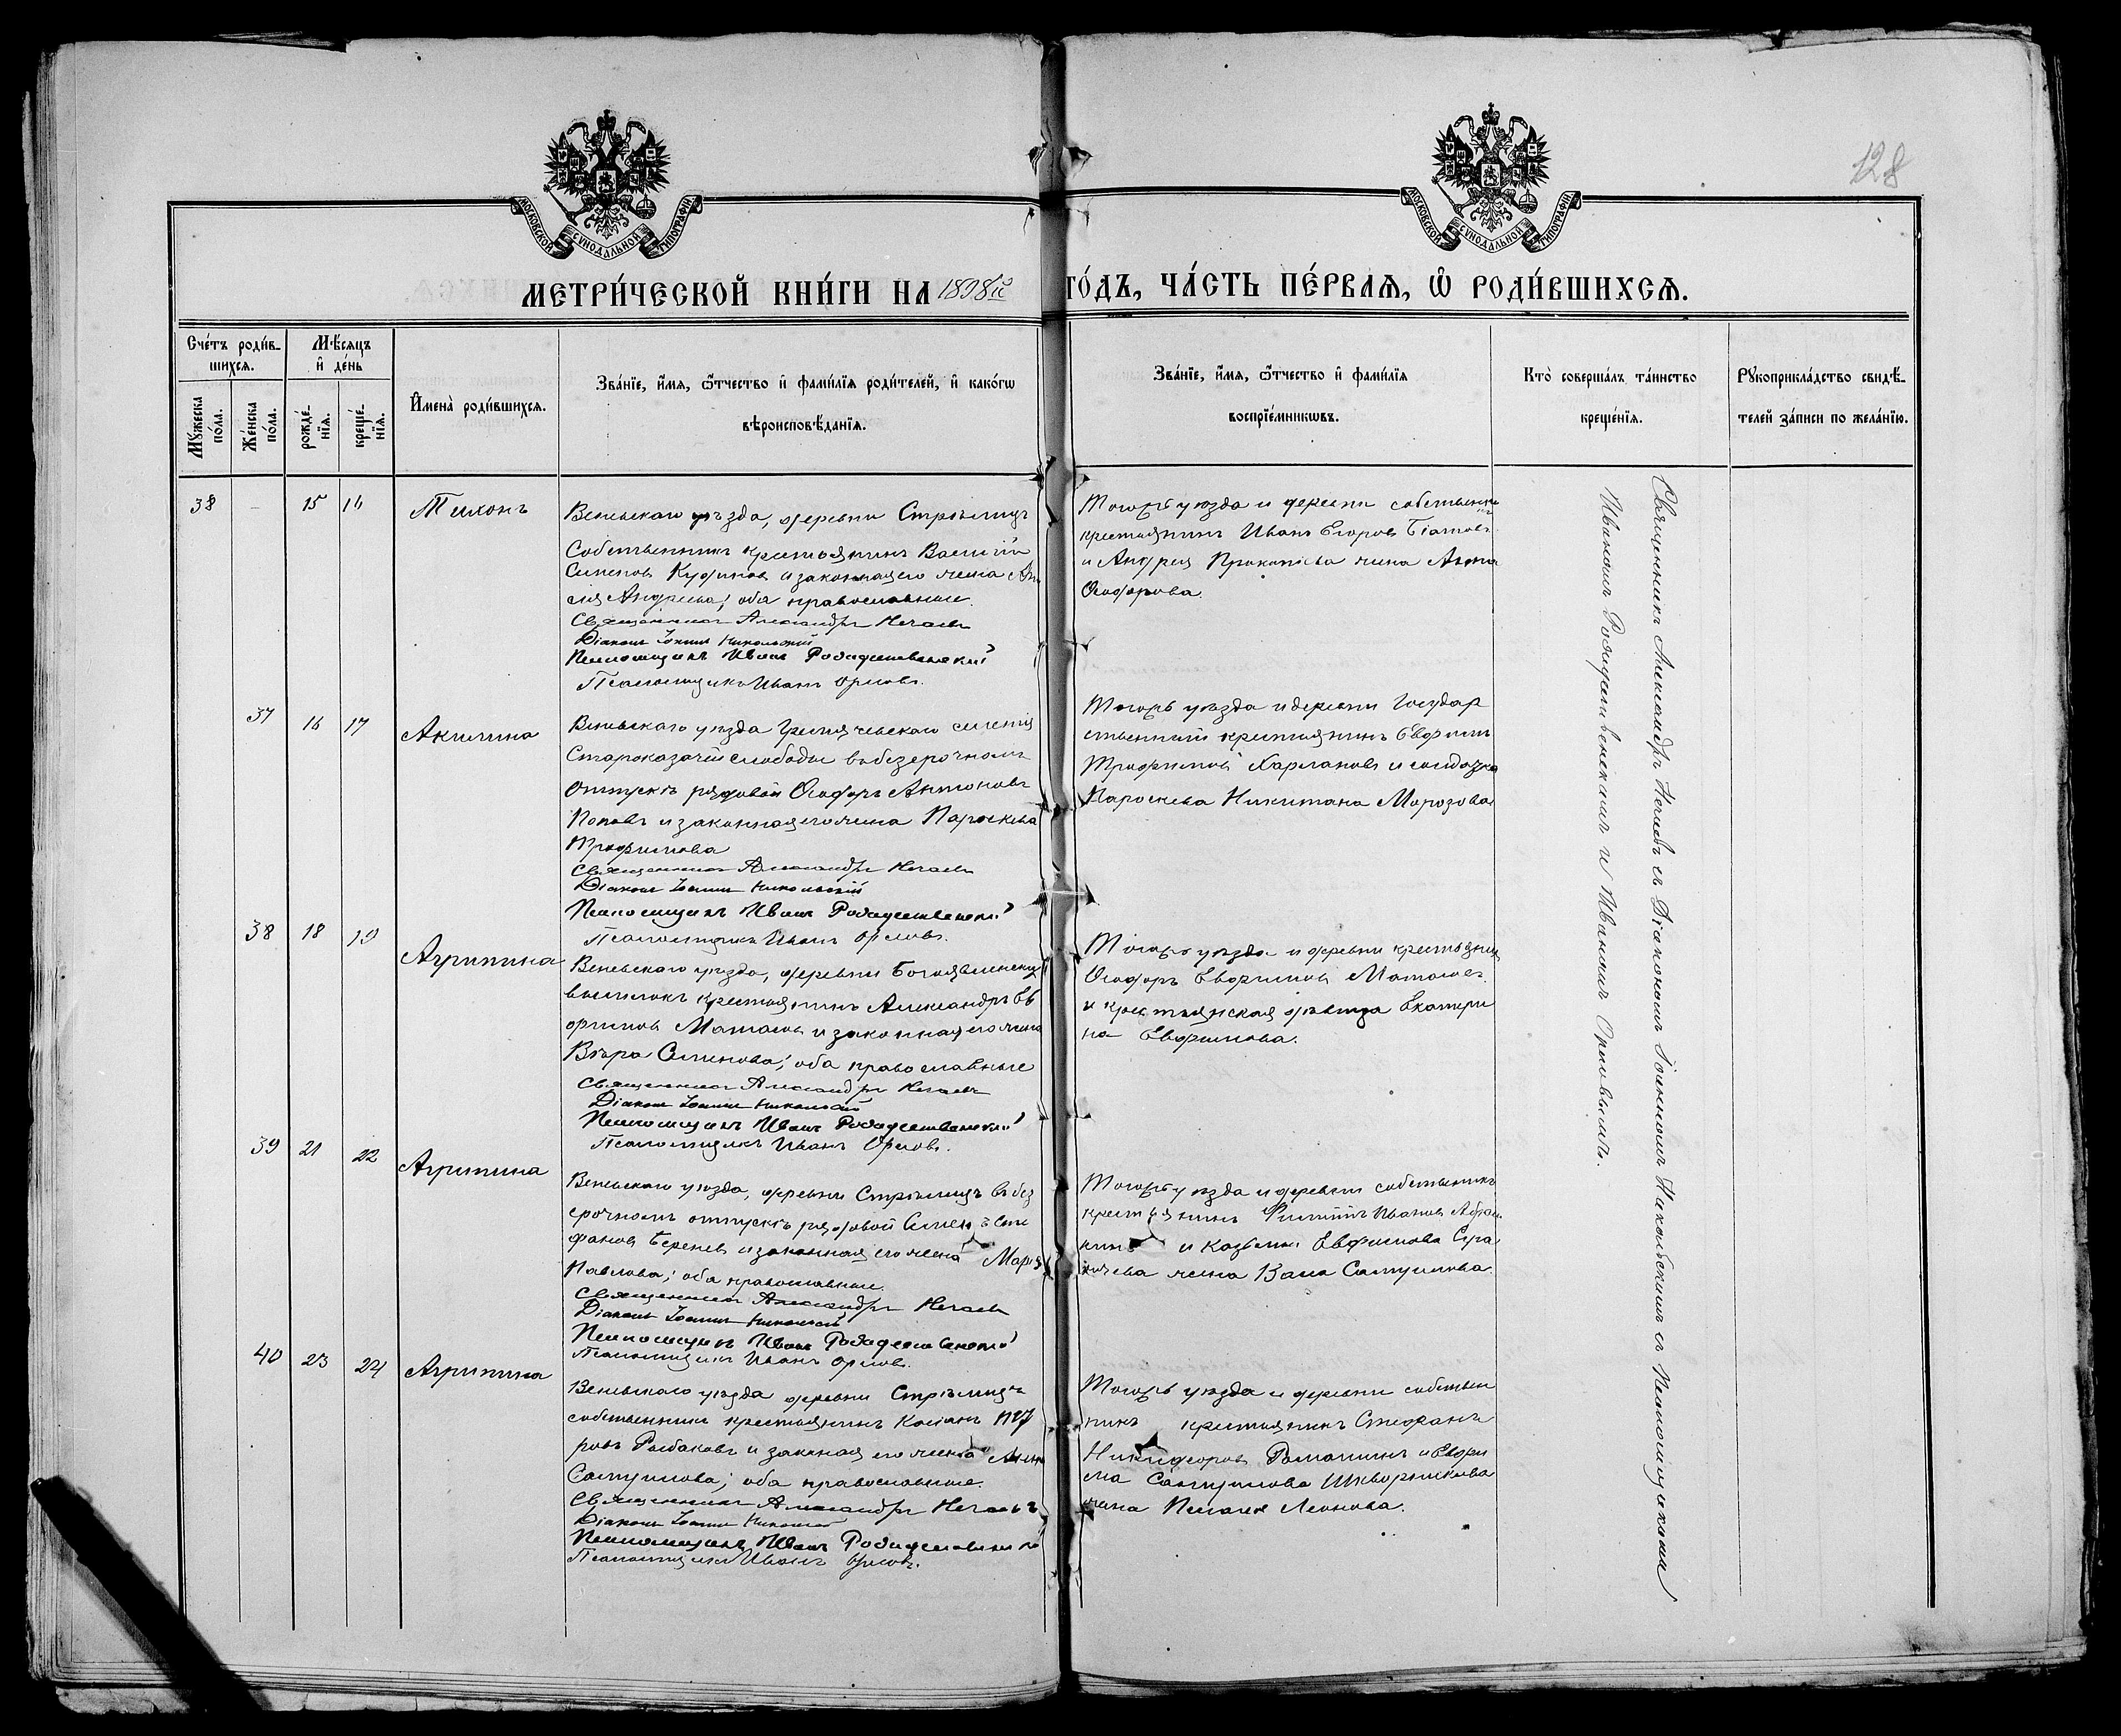 МОСКОВСКОЙ СѴНОДАЛЬНОЙ ТИПОГРАФІИ
МОСКОВСКОЙ СѴНОДАЛЬНОЙ ТИПОГРАФІИ
128
МЕТРИ́ЧЕСКОЙ КНИ́ГИ НА 1898й ГО́ДЪ, ЧА́СТЬ ПЕ́РВАѦ, Ѡ РОДИ́ВШИХСѦ.
Сче́тъ роди́в-
шихся.
Мꙋжеска по́ла.
Же́нска по́ла.
Мѣ́сяцъ
и҆ де́нь
рожде́-
нїя.
креще́-
нїя.
И҆мена̀ роди́вшихся.
Зва́нїе, и҆́мя, ѻ҆́тчество и҆ фами́лїя роди́телей, и҆ како́гѡ
вѣроисповѣ́данїя.
Зва́нїе, и҆́мя, ѻ҆́тчество и҆ фами́лїя
воспрїе́мникѡвъ.
Кто̀ соверша́лъ та́инство
креще́нїя.
Рꙋкоприкла́дство свидѣ́-
телей за́писи по жела́нїю.
38 – 15 16 Тихонъ
Веневскаго уѣзда, деревни Стрѣлицъ
Собственникъ крестьянинъ Василій
Семеновъ и законная его жена
Андреева; оба православные.
Священникъ Александръ Нечаевъ
Діаконъ Іоаннъ Никольскій
Псаломщикъ Иванъ Рождественскій
Псаломщикъ Иванъ Орловъ.
Тогожъ уѣзда и деревни собственникъ
крестьянинъ Иванъ Егоровъ
и Андрея Прокопіева жена Анна
Ѳеодорова.
37 16 17 Акилина
Веневскаго уѣзда
Староказачей слободы въ безсрочномъ
отпускѣ рядовой Ѳеодоръ Антоновъ
Поповъ и законная его жена Параскева
Трофимова
Священникъ Александръ Нечаевъ
Діаконъ Іоаннъ Никольскій
Псаломщикъ Иванъ Рождественскій
Псаломщикъ Иванъ Орловъ.
Тогожъ уѣзда и деревни Государ
ственный крестьянинъ Евфимъ
Трофимовъ Харлановъ и солдатка
Параскева Никитина Морозова
38 18 19 Агрипина
Веневскаго уѣзда, деревни Богоявленскихъ
выселокъ крестьянинъ Александръ Ев
фимовъ Матасовъ и законная его жена
Вѣра Семенова; оба православные
Священникъ Александръ Нечаевъ
Діаконъ Іоаннъ Никольскій
Псаломщикъ Иванъ Рождественскій
Псаломщикъ Иванъ Орловъ.
Тогожъ уѣзда и деревни крестьянинъ
Ѳеодоръ Евфимовъ Матасовъ
и крестьянская дѣвица Екатери
на Евфимова.
39 21 22 Агрипина
Веневскаго уѣзда, деревни Стрѣлицъ въ без
срочномъ отпускѣ рядовой Семенъ Сте
фановъ и законная его жена Марія
Павлова; оба православные.
Священникъ Александръ Нечаевъ
Діаконъ Іоаннъ Никольскій
Псаломщикъ Иванъ Рождественскій
Псаломщикъ Иванъ Орловъ.
Тогожъ уѣзда и деревни собственникъ
крестьянинъ Филиппъ Ивановъ
и Козьмы Евфимова
жена
40 23 24 Агрипина
Веневскаго уѣзда деревни Стрѣлицъ
собственникъ крестьянинъ
Рыбаковъ и законная его жена Анна
оба православные.
Священникъ Александръ Нечаевъ
Діаконъ Іоаннъ Никольскій
Псаломщикъ Иванъ Рождественскій
Псаломщикъ Иванъ Орловъ.
Тогожъ уѣзда и деревни собствен
никъ крестьянинъ Стефанъ
Никифоровъ и Евфи
ма
жена Пелагея Леонова.
Священникъ Александръ Нечаевъ съ Діакономъ Іоанномъ Никольскимъ съ Псаломщиками
Иваномъ Рождественскимъ и Иваномъ Орловымъ.